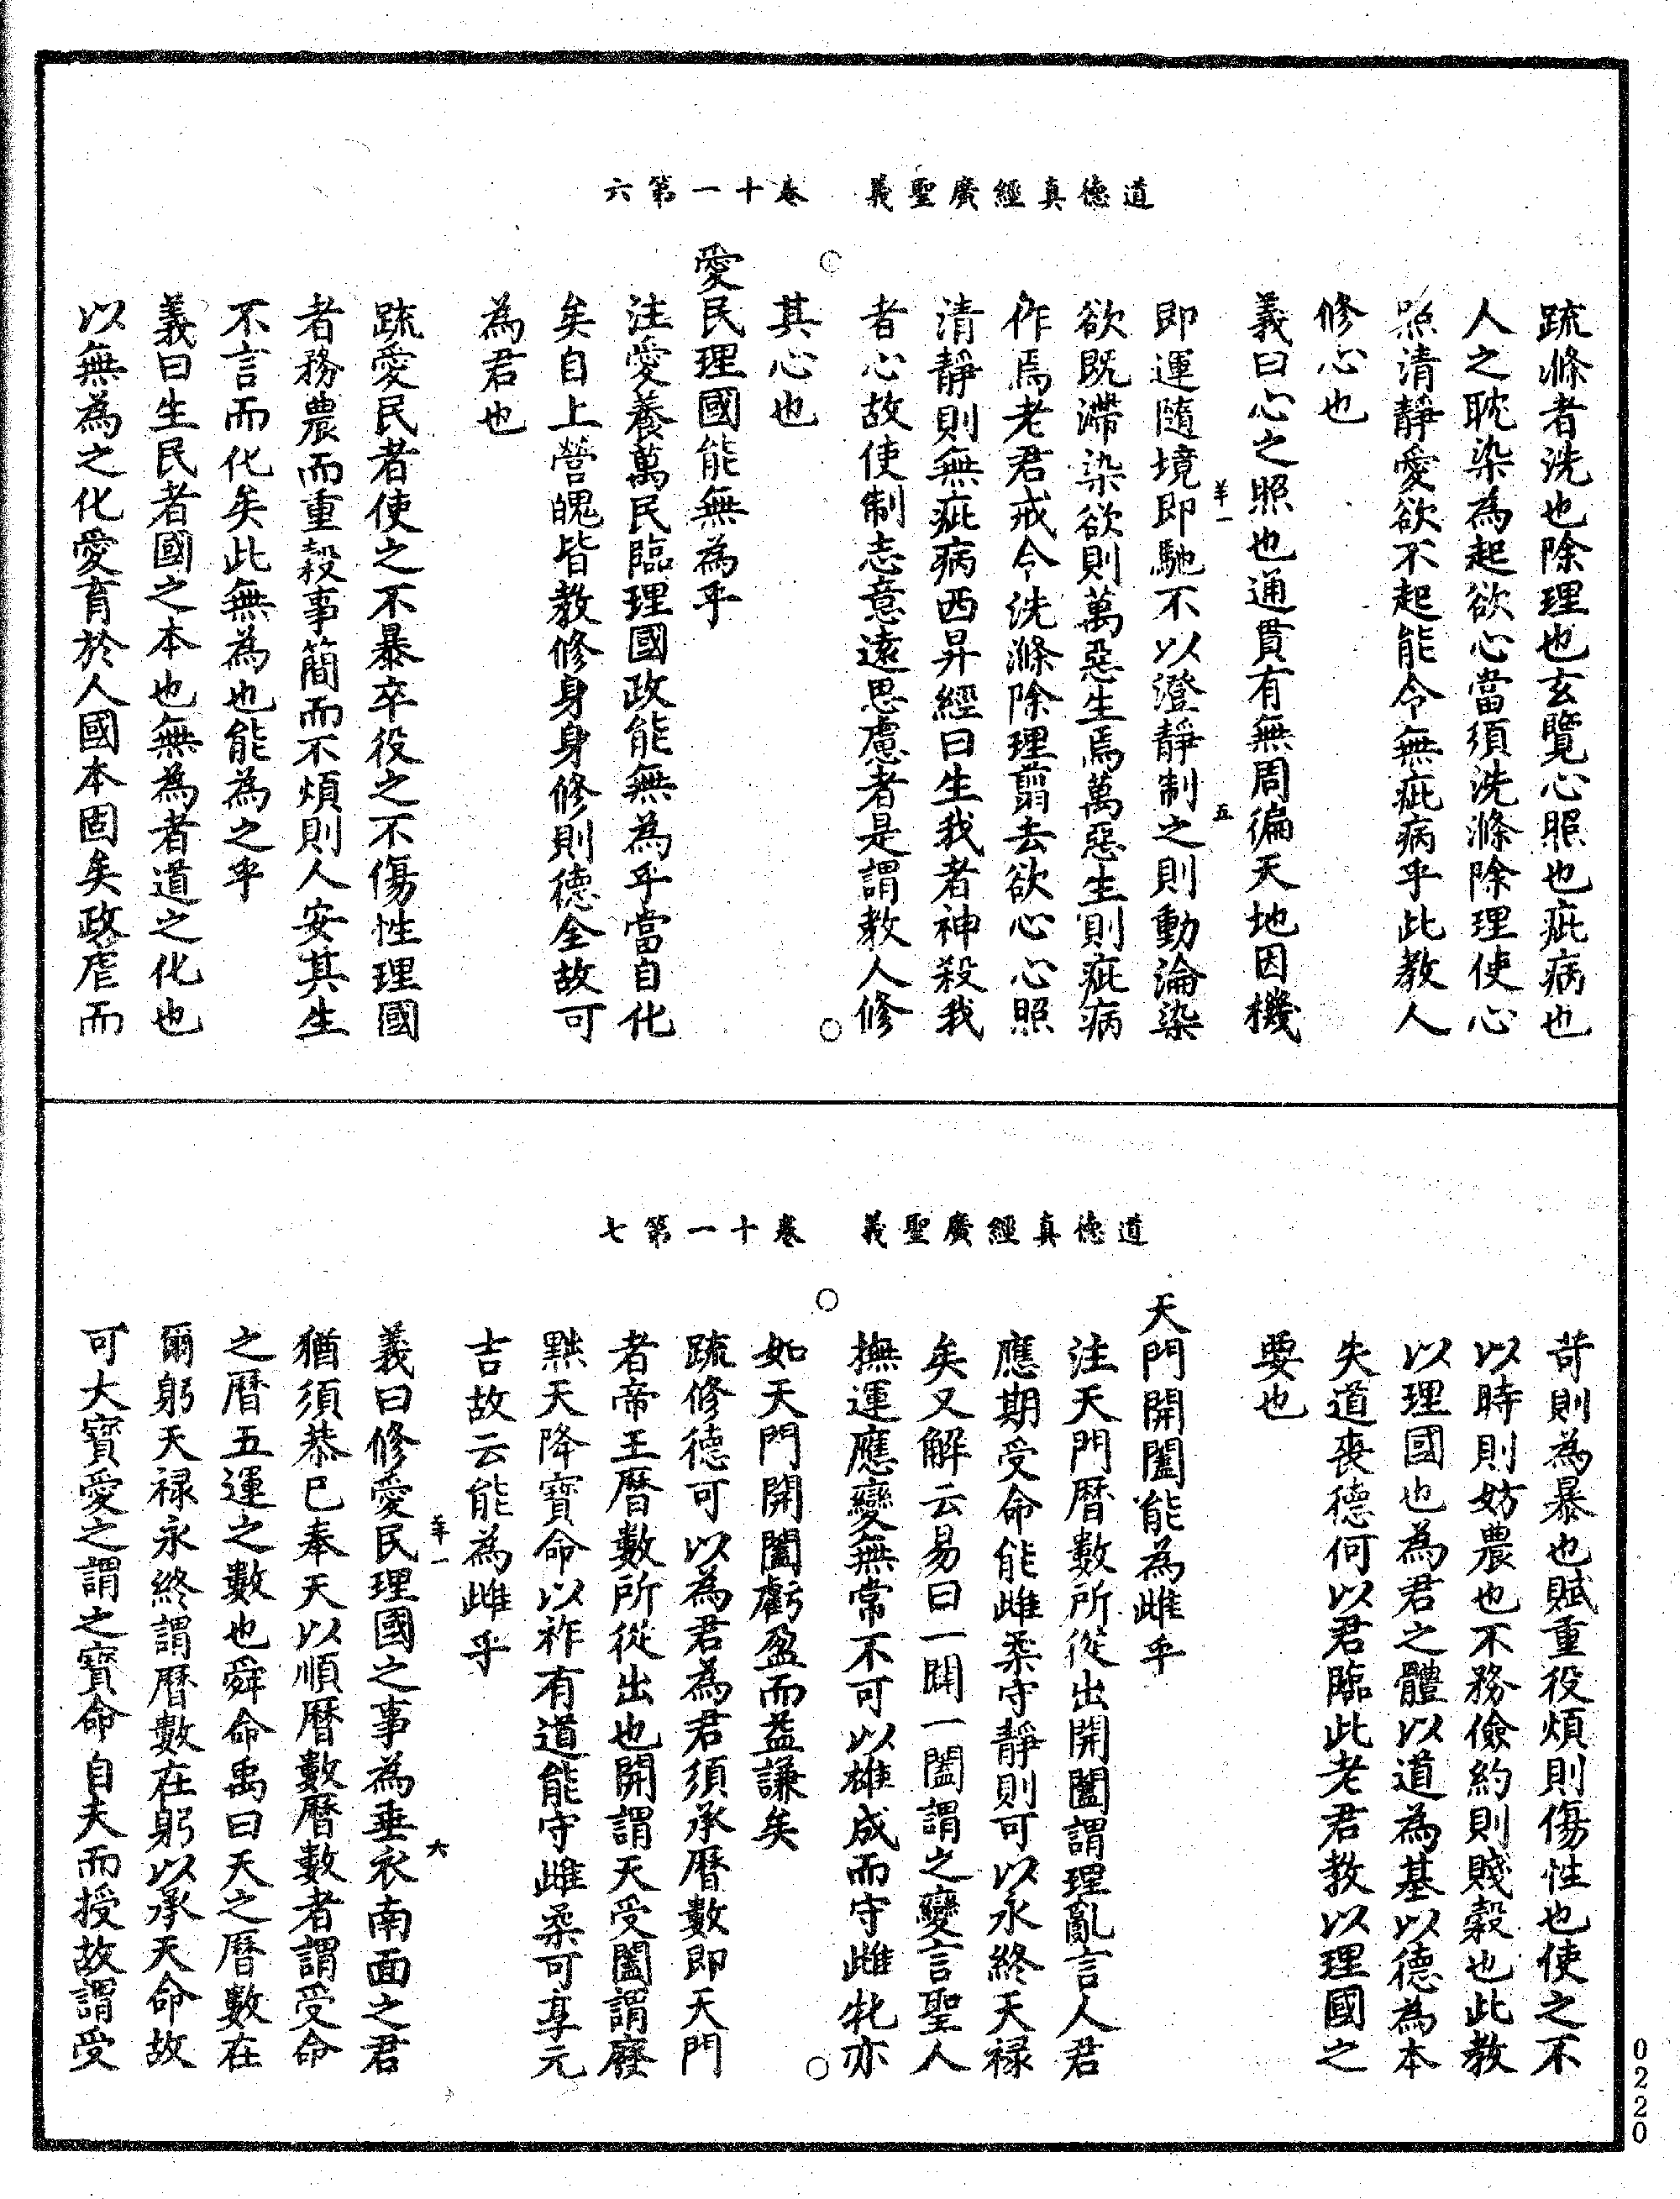 道德真經廣聖義 卷十一第六
疏滌者洗也除理也玄覽心照也疵病也
人之耽染為起欲心當須洗滌除理使心
照清靜愛欲不起能令無疵病乎此教人
修心也
義曰心之照也通貫有無周徧天地因機
羊一 五
即運隨境即馳不以澄靜制之則動淪染
欲既滯染欲則萬惡生焉萬惡生則疵病
作焉老君戒令洗滌除理翦去欲心心照
清靜則無疵病西昇經曰生我者神殺我
者心故使制志意遠思慮者是謂教人修
其心也
愛民理國能無為乎
注愛養萬民臨理國政能無為乎當自化
矣自上營魄皆教修身身修則德全故可
為君也
疏愛民者使之不暴卒役之不傷性理國
者務農而重穀事簡而不煩則人安其生
不言而化矣此無為也能為之乎
義曰生民者國之本也無為者道之化也
以無為之化愛育於人國本固矣政虐而
道德真經廣聖義 卷十一第七
苛則為暴也賦重役煩則傷性也使之不
以時則妨農也不務儉約則賤穀也此教
以理國也為君之體以道為基以德為本
失道喪德何以君臨此老君教以理國之
要也
天門開闔能為雌乎
注天門曆數所從出開闔謂理亂言人君
應期受命能雌柔守靜則可以永終天祿
矣又解云易曰一闢一闔謂之變言聖人
撫運應變無常不可以雄成而守雌牝亦
如天門開闔虧盈而益謙矣
疏修德可以為君為君須承曆數即天門
者帝王曆數所從出也開謂天受闔謂廢
黜天降寶命以祚有道能守雌柔可享元
吉故云能為雌乎
羊一 六
義曰修愛民理國之事為垂衣南面之君
猶須恭已奉天以順曆數曆數者謂受命
之曆五運之數也舜命禹曰天之曆數在
爾躬天祿永終謂曆數在躬以承天命故
可大寶愛之謂之寶命自天而授故謂受
0220